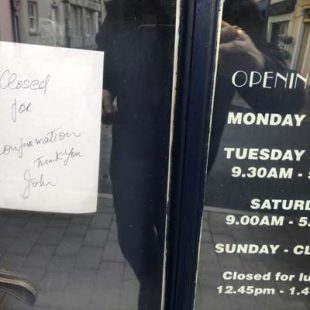 Closed
for
Confirmation
Thank You
John
OPENIN
MONDAY
TUESDAY
9.30AM - 5
SATU
9.00AM - 5.
SUNDAY - CL
Closed for lu
12.45pm - 1.4